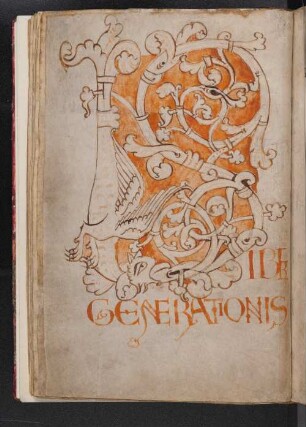 LIBE
GENERATIONIS